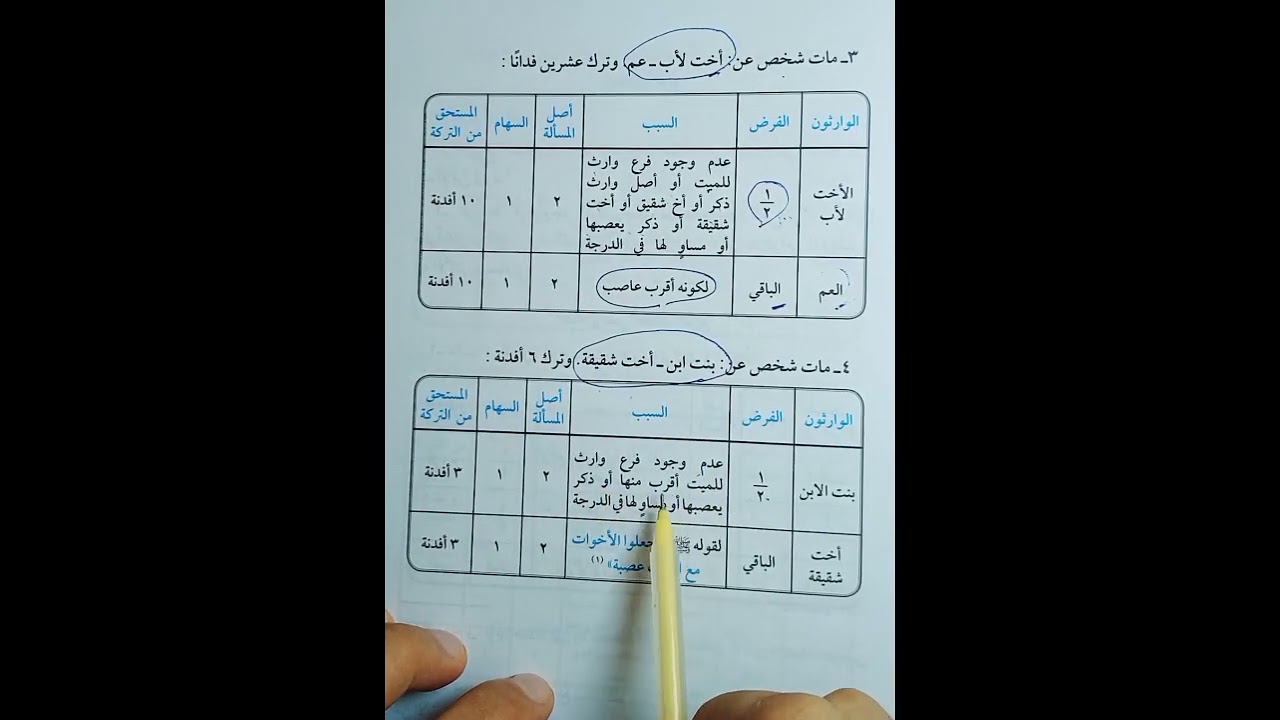 ٣ـ مات شخص عن: أخت لأب ــ عم، وترك عشرين فدانًا :
الوارثون الفرض السبب أصل المسألة السهام المستحق من التركة
الأخت لأب
١/٢
عدم وجود فرع وارث
للميت أو أصل وارث
ذكر أو أخ شقيق أو أخت
شقيقة أو ذكر يعصبها
أو مساوٍ لها في الدرجة
٢ ١ ١٠ أفدنة
العم الباقي لكونه أقرب عاصب ٢ ١ ١٠ أفدنة
٤ـ مات شخص عن: بنت ابن ــ أخت شقيقة. وترك ٦ أفدنة :
الوارثون الفرض السبب أصل المسألة السهام المستحق من التركة
بنت الابن
١/٢
عدم وجود فرع وارث
للميت أقرب منها أو ذكر
يعصبها أو مساوٍ لها في الدرجة
٢ ١ ٣ أفدنة
أخت شقيقة
الباقي
لقوله ﷺ الأخوات
مع عصبة» (١)
٢ ١ ٣ أفدنة